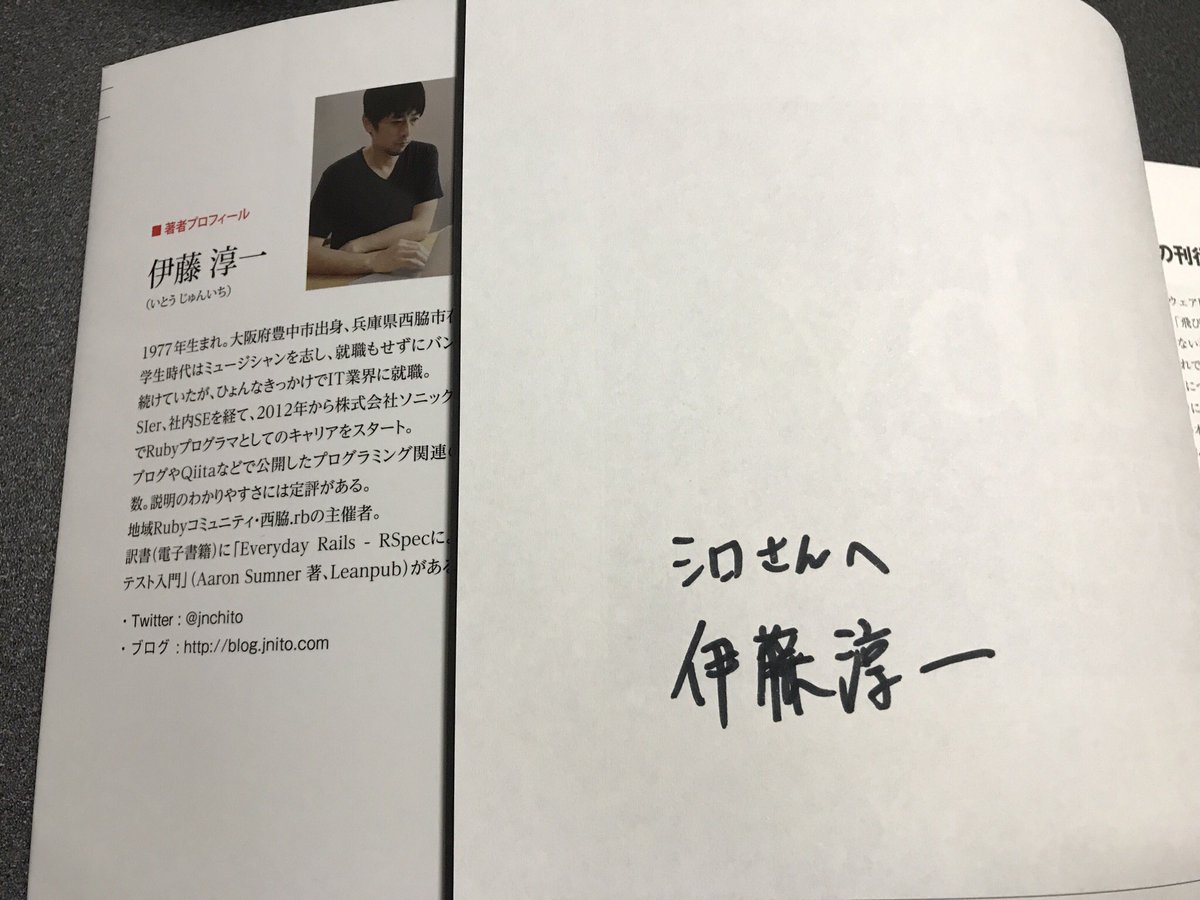 ■著者プロフィール
伊藤 淳一
（いとう じゅんいち）
1977年生まれ。大阪府豊中市出身、兵庫県西脇市在
学生時代はミュージシャンを志し、就職もせずにバン
続けていたが、ひょんなきっかけでIT業界に就職。
SIer、社内SEを経て、2012年から株式会社ソニック
でRubyプログラマとしてのキャリアをスタート。
ブログやQiitaなどで公開したプログラミング関連の
数。説明のわかりやすさには定評がある。
地域Rubyコミュニティ・西脇.rbの主催者。
訳書（電子書籍）に「Everyday Rails - RSpecによ
テスト入門」（Aaron Sumner 著、Leanpub）がある
・Twitter : @jnchito
・ブログ : http://blog.jnito.com
シロさんへ
伊藤淳一
の刊行
ウェア
「飛び
ない
れで
に